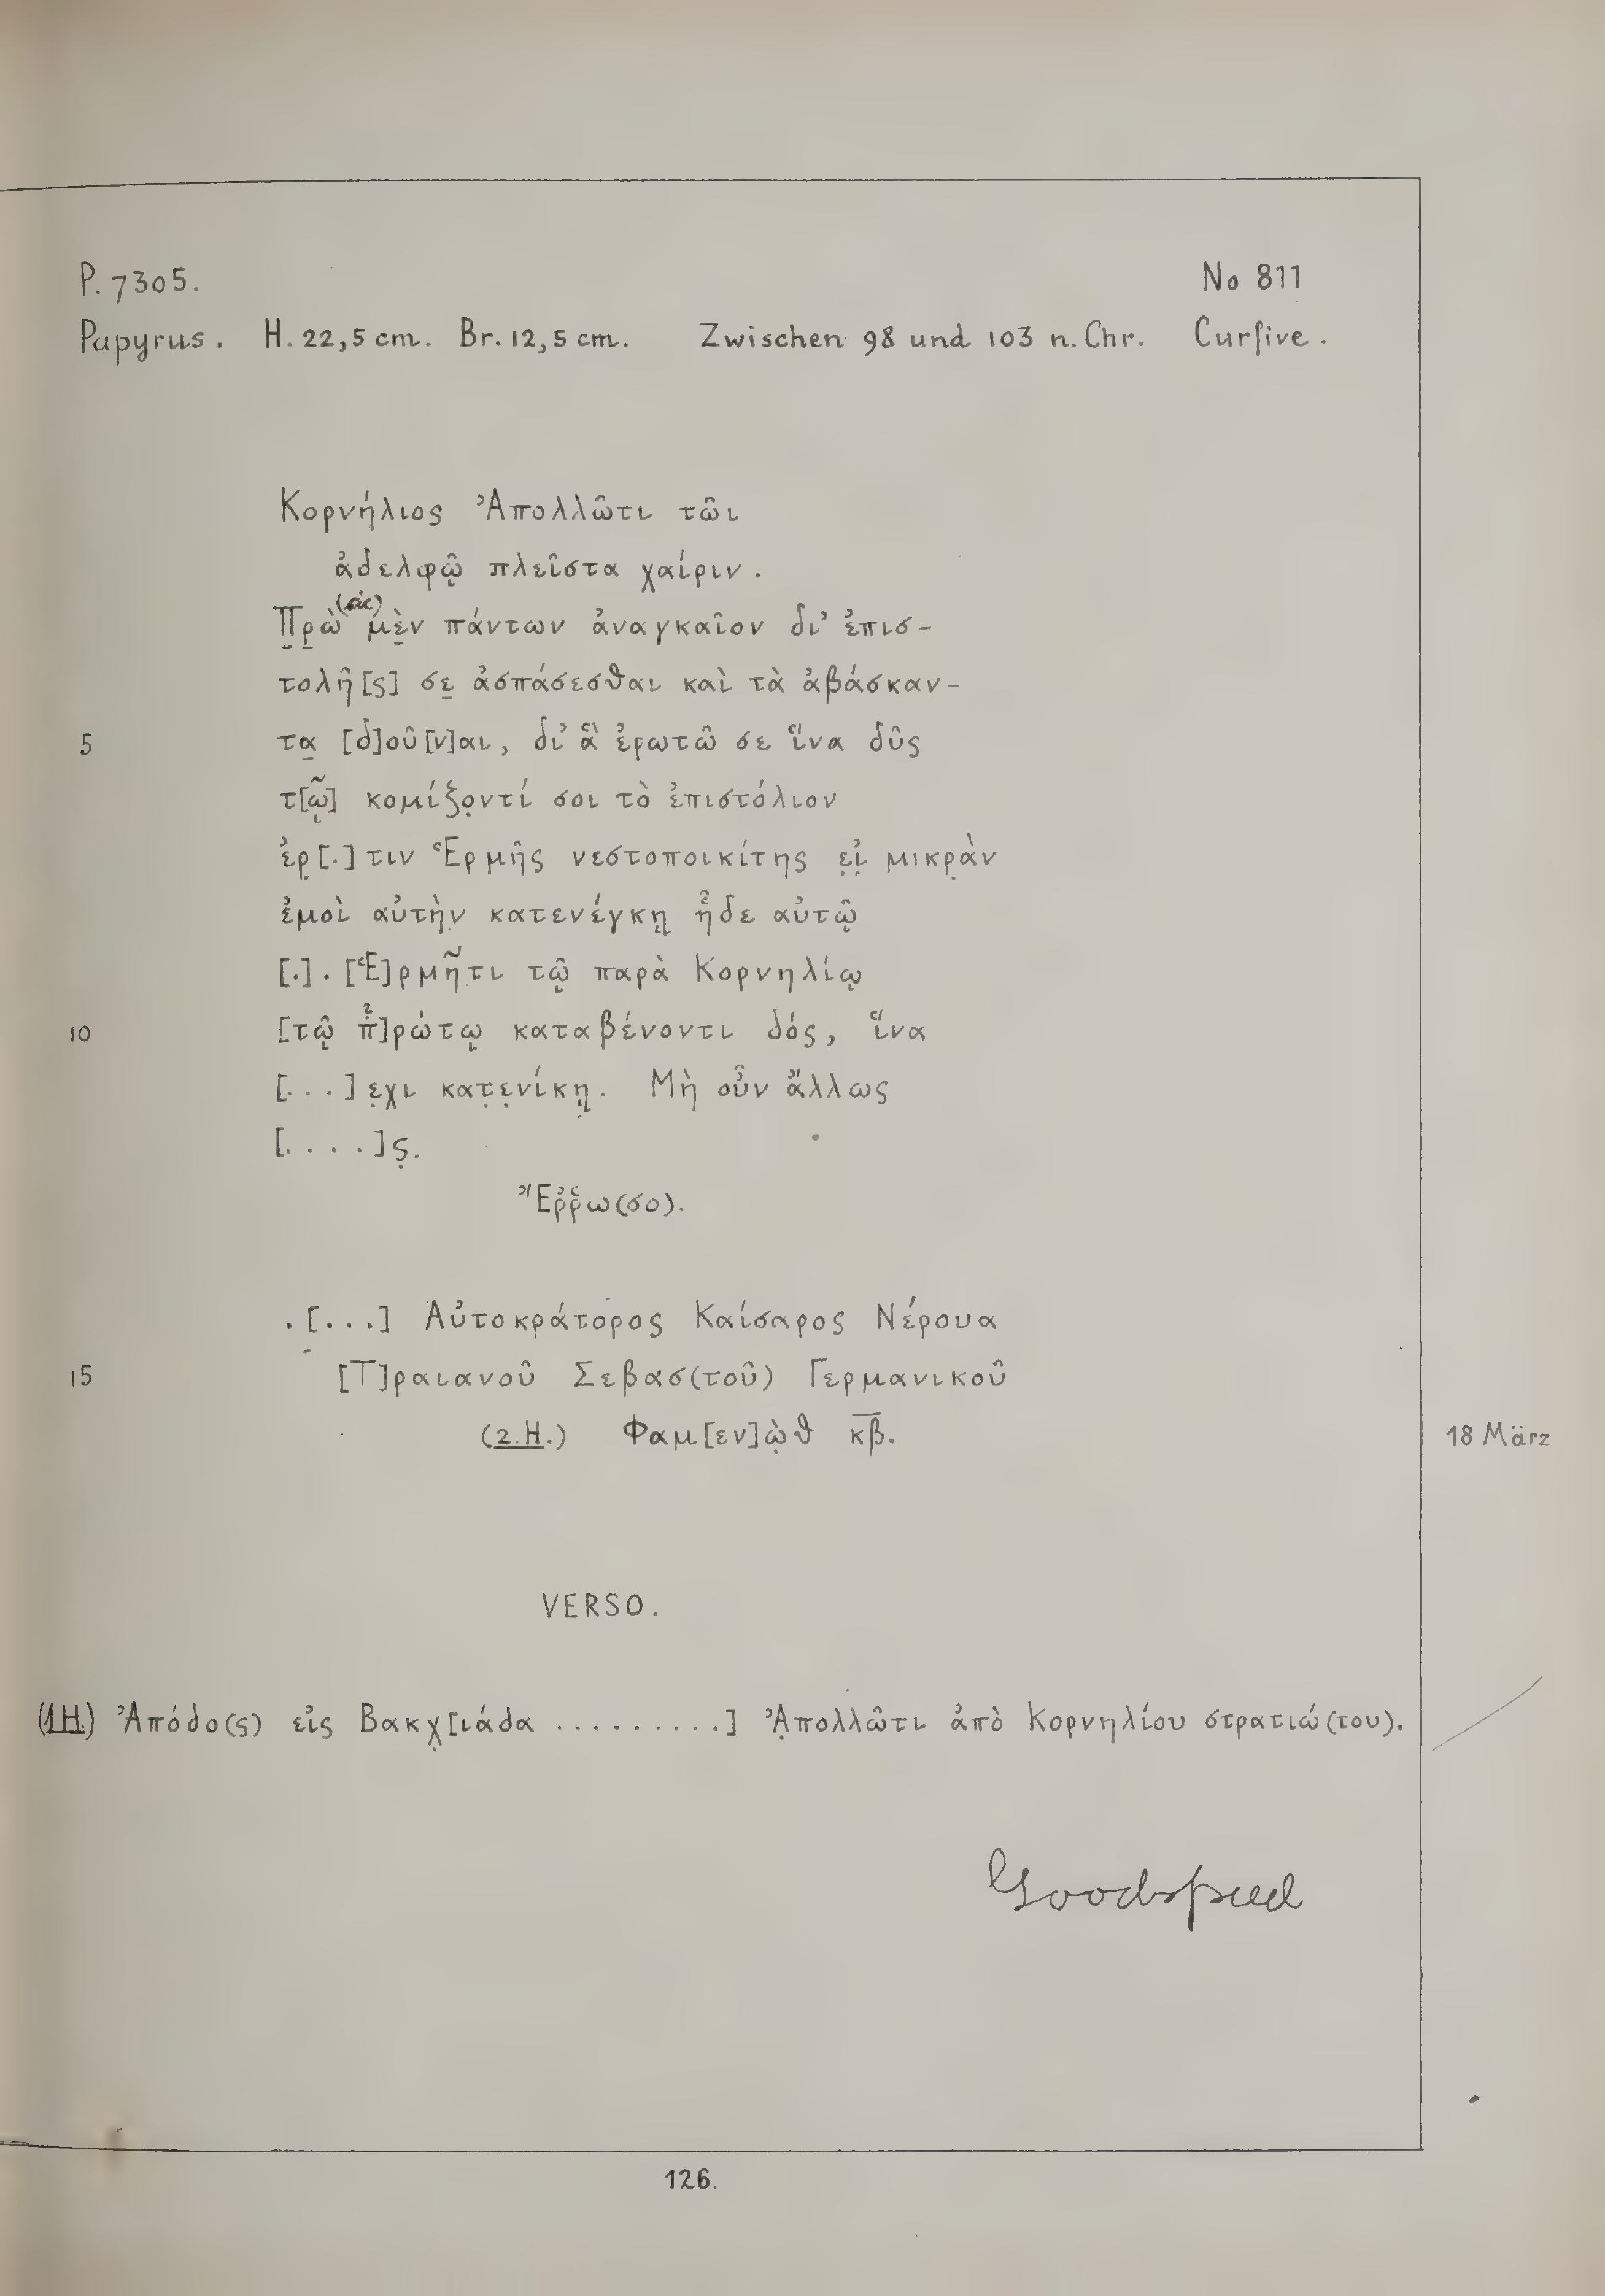 P. 7305. No 811
Papyrus. H. 22,5 cm. Br. 12,5 cm. Zwischen 98 und 103 n. Chr. Curſive.
Κορνήλιος Ἀπολλῶτι τῶι
ἀδελφῷ πλεῖστα χαίριν.
(sic)
Π̣ρ̣ὼ μὲ̣ν πάντων ἀναγκαῖον δι' ἐπισ-
τολῆ[ς] σε̣ ἀσπάσεσθαι καὶ τὰ ἀβάσκαν-
5 τα̣ [δ]οῦ[ν]αι, δι' ἃ ἐρωτῶ σε ἵνα δῦς
τ[ῷ] κομίζο̣ντί σοι τὸ ἐπιστόλιον
ἐρ̣[.]τιν Ἑρμῆς νεστοποικίτης ε̣ἰ̣ μικρ̣ὰν
ἐμοὶ αὐτὴν κατενέγκῃ ἦδε αὐτῷ
[.]. [Ἑ]ρμῆτι τῷ παρὰ Κορνηλίῳ
10 [τῷ π]ρώτῳ καταβένοντι δός, ἵνα
[...]ε̣χι κατ̣ε̣νίκῃ̣. Μὴ οὖν ἄλλως
[....]ς̣.
Ἔῤῥω(σο).
.[...] Αὐτοκρ̣άτορος Καίσαρος Νέρουα
15 [Τ]ραιανοῦ Σεβασ(τοῦ) Γερμανικοῦ
(2.H.) Φαμ[εν]ὼ̣θ κ̅β̅. 18 März
VERSO.
(1H.) Ἀπόδο(ς) εἰς Βακχ̣[ιάδα .........] Ἀ̣πολλῶτι ἀπὸ Κορνηλίου στρατιώ(του).
Goodspeed
126.